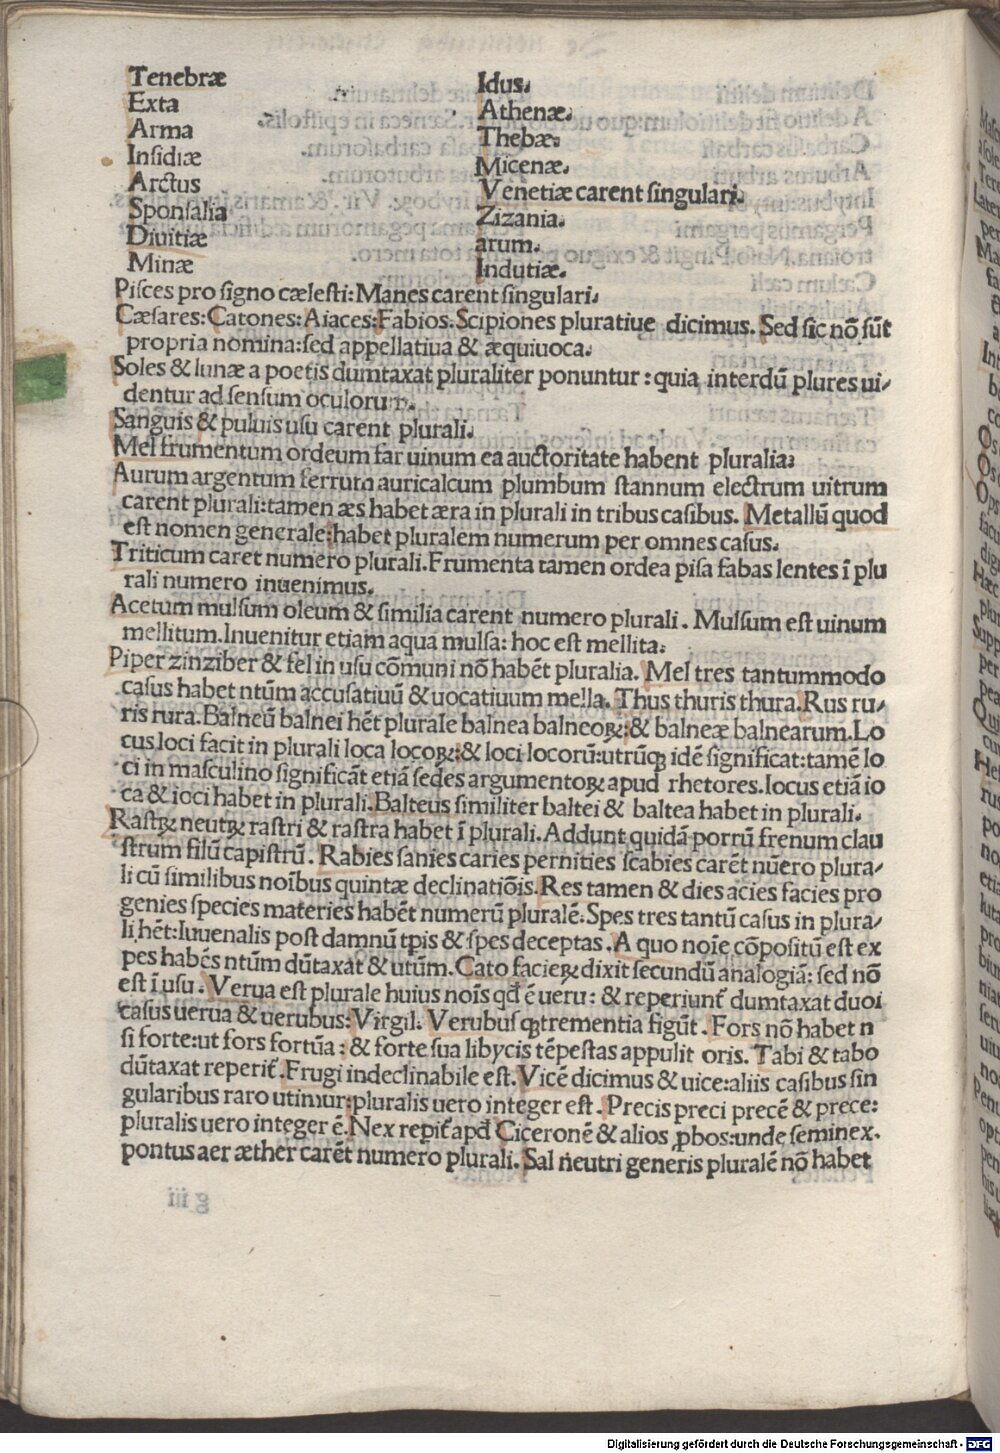 Tenebræ
Exta
Arma
Insidiæ
Arctus
Sponsalia
Diuitiæ
Minæ
Idus.
Athenæ.
Thebæ.
Micenæ.
Venetiæ carent singulari.
Zizania.
arum.
Indutiæ.
Pisces pro signo cælesti: Manes carent singulari.
Cæsares: Catones: Aiaces: Fabios. Scipiones pluratiue dicimus. Sed sic nõ sũt
propria nomina: sed appellatiua & æquiuoca.
Soles & lunæ a poetis dumtaxat pluraliter ponuntur: quia interdũ plures ui/
dentur ad sensum oculorum.
Sanguis & puluis usu carent plurali.
Mel frumentum ordeum far uinum ea auctoritate habent pluralia.
Aurum argentum ferrum auricalcum plumbum stannum electrum uitrum
carent plurali: tamen æs habet æra in plurali in tribus casibus. Metallũ quod
est nomen generale: habet pluralem numerum per omnes casus.
Triticum caret numero plurali. Frumenta tamen ordea pisa fabas lentes ĩ plu
rali numero inuenimus.
Acetum mulsum oleum & similia carent numero plurali. Mulsum est uinum
mellitum. Inuenitur etiam aqua mulsa: hoc est mellita.
Piper zinziber & fel in usu cõmuni nõ habẽt pluralia. Mel tres tantummodo
casus habet ntũm accusatiuũ & uocatiuum mella. Thus thuris thura. Rus ru/
ris rura. Balneũ balnei hẽt plurale balnea balneoꝝ: & balneæ balnearum. Lo
cus loci facit in plurali loca locoꝝ: & loci locorũ: utrũqꝫ idẽ significat: tamẽ lo
ci in masculino significãt etiã sedes argumentoꝝ apud rhetores. Iocus etiã io
ca & ioci habet in plurali. Balteus similiter baltei & baltea habet in plurali.
Rastꝝ neutꝝ rastri & rastra habet ĩ plurali. Addunt quidã porrũ frenum clau
strum filũ capistrũ. Rabies sanies caries pernities scabies carẽt nũero plura/
li cũ similibus noĩbus quintæ declinatiõis. Res tamen & dies acies facies pro
genies species materies habẽt numerũ pluralẽ. Spes tres tantũ casus in plura/
li hẽt: Iuuenalis post damnũ tpis & spes deceptas. A quo noĩe cõpositũ est ex
pes habẽs ntũm dũtaxat & utũm. Cato facieꝝ dixit secundũ analogiã: sed nõ
est ĩ usu. Verua est plurale huius noĩs qđ ẽ ueru: & reperiunt᷑ dumtaxat duoi
casus uerua & uerubus: Virgil. Verubusqꝫ trementia figũt. Fors nõ habet n
si forte: ut fors fortũa: & forte sua libycis tẽpestas appulit oris. Tabi & tabo
dũtaxat reperit᷑. Frugi indeclinabile est. Vicẽ dicimus & uice: aliis casibus sin
gularibus raro utimur: pluralis uero integer est. Precis preci precẽ & prece:
pluralis uero integer ẽ. Nex repit᷑ apđ Ciceronẽ & alios ꝓbos: unde seminex.
pontus aer æther carẽt numero plurali. Sal neutri generis pluralẽ nõ habet
Digitalisierung gefördert durch die Deutsche Forschungsgemeinschaft - DFG